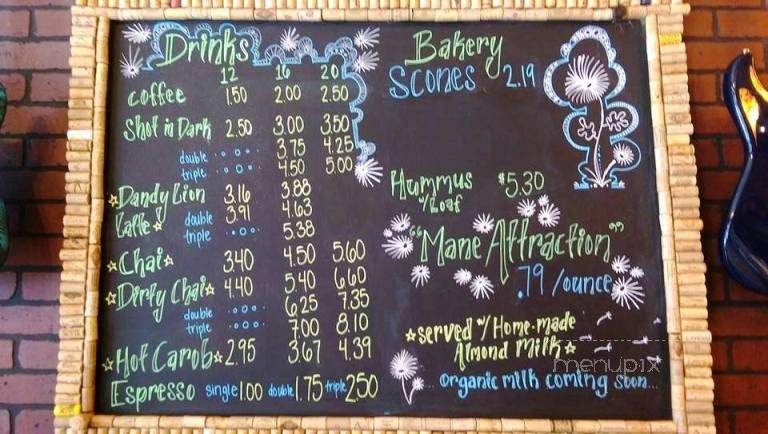 Drinks
12 16 20
Coffee 1.50 2.00 2.50
Shot n Dark 2.50 3.00 3.50
double 3.75 4.25
triple 4.50 5.00
☆Dandy Lion 3.16 3.88
Latte☆ double 3.91 4.63
triple 5.38
☆Chai☆ 3.40 4.50 5.60
☆Dirty Chai☆ 4.40 5.40 6.60
double 6.25 7.35
triple 7.00 8.10
☆Hot Carob☆ 2.95 3.67 4.39
Espresso single 1.00 double 1.75 triple 2.50
Bakery
Scones 2.19
Hummus $5.30
w/Loaf
"Mane Attraction"
.79 /ounce
☆served w/ Home-made
Almond Milk☆
... Organic milk coming soon...
menupix